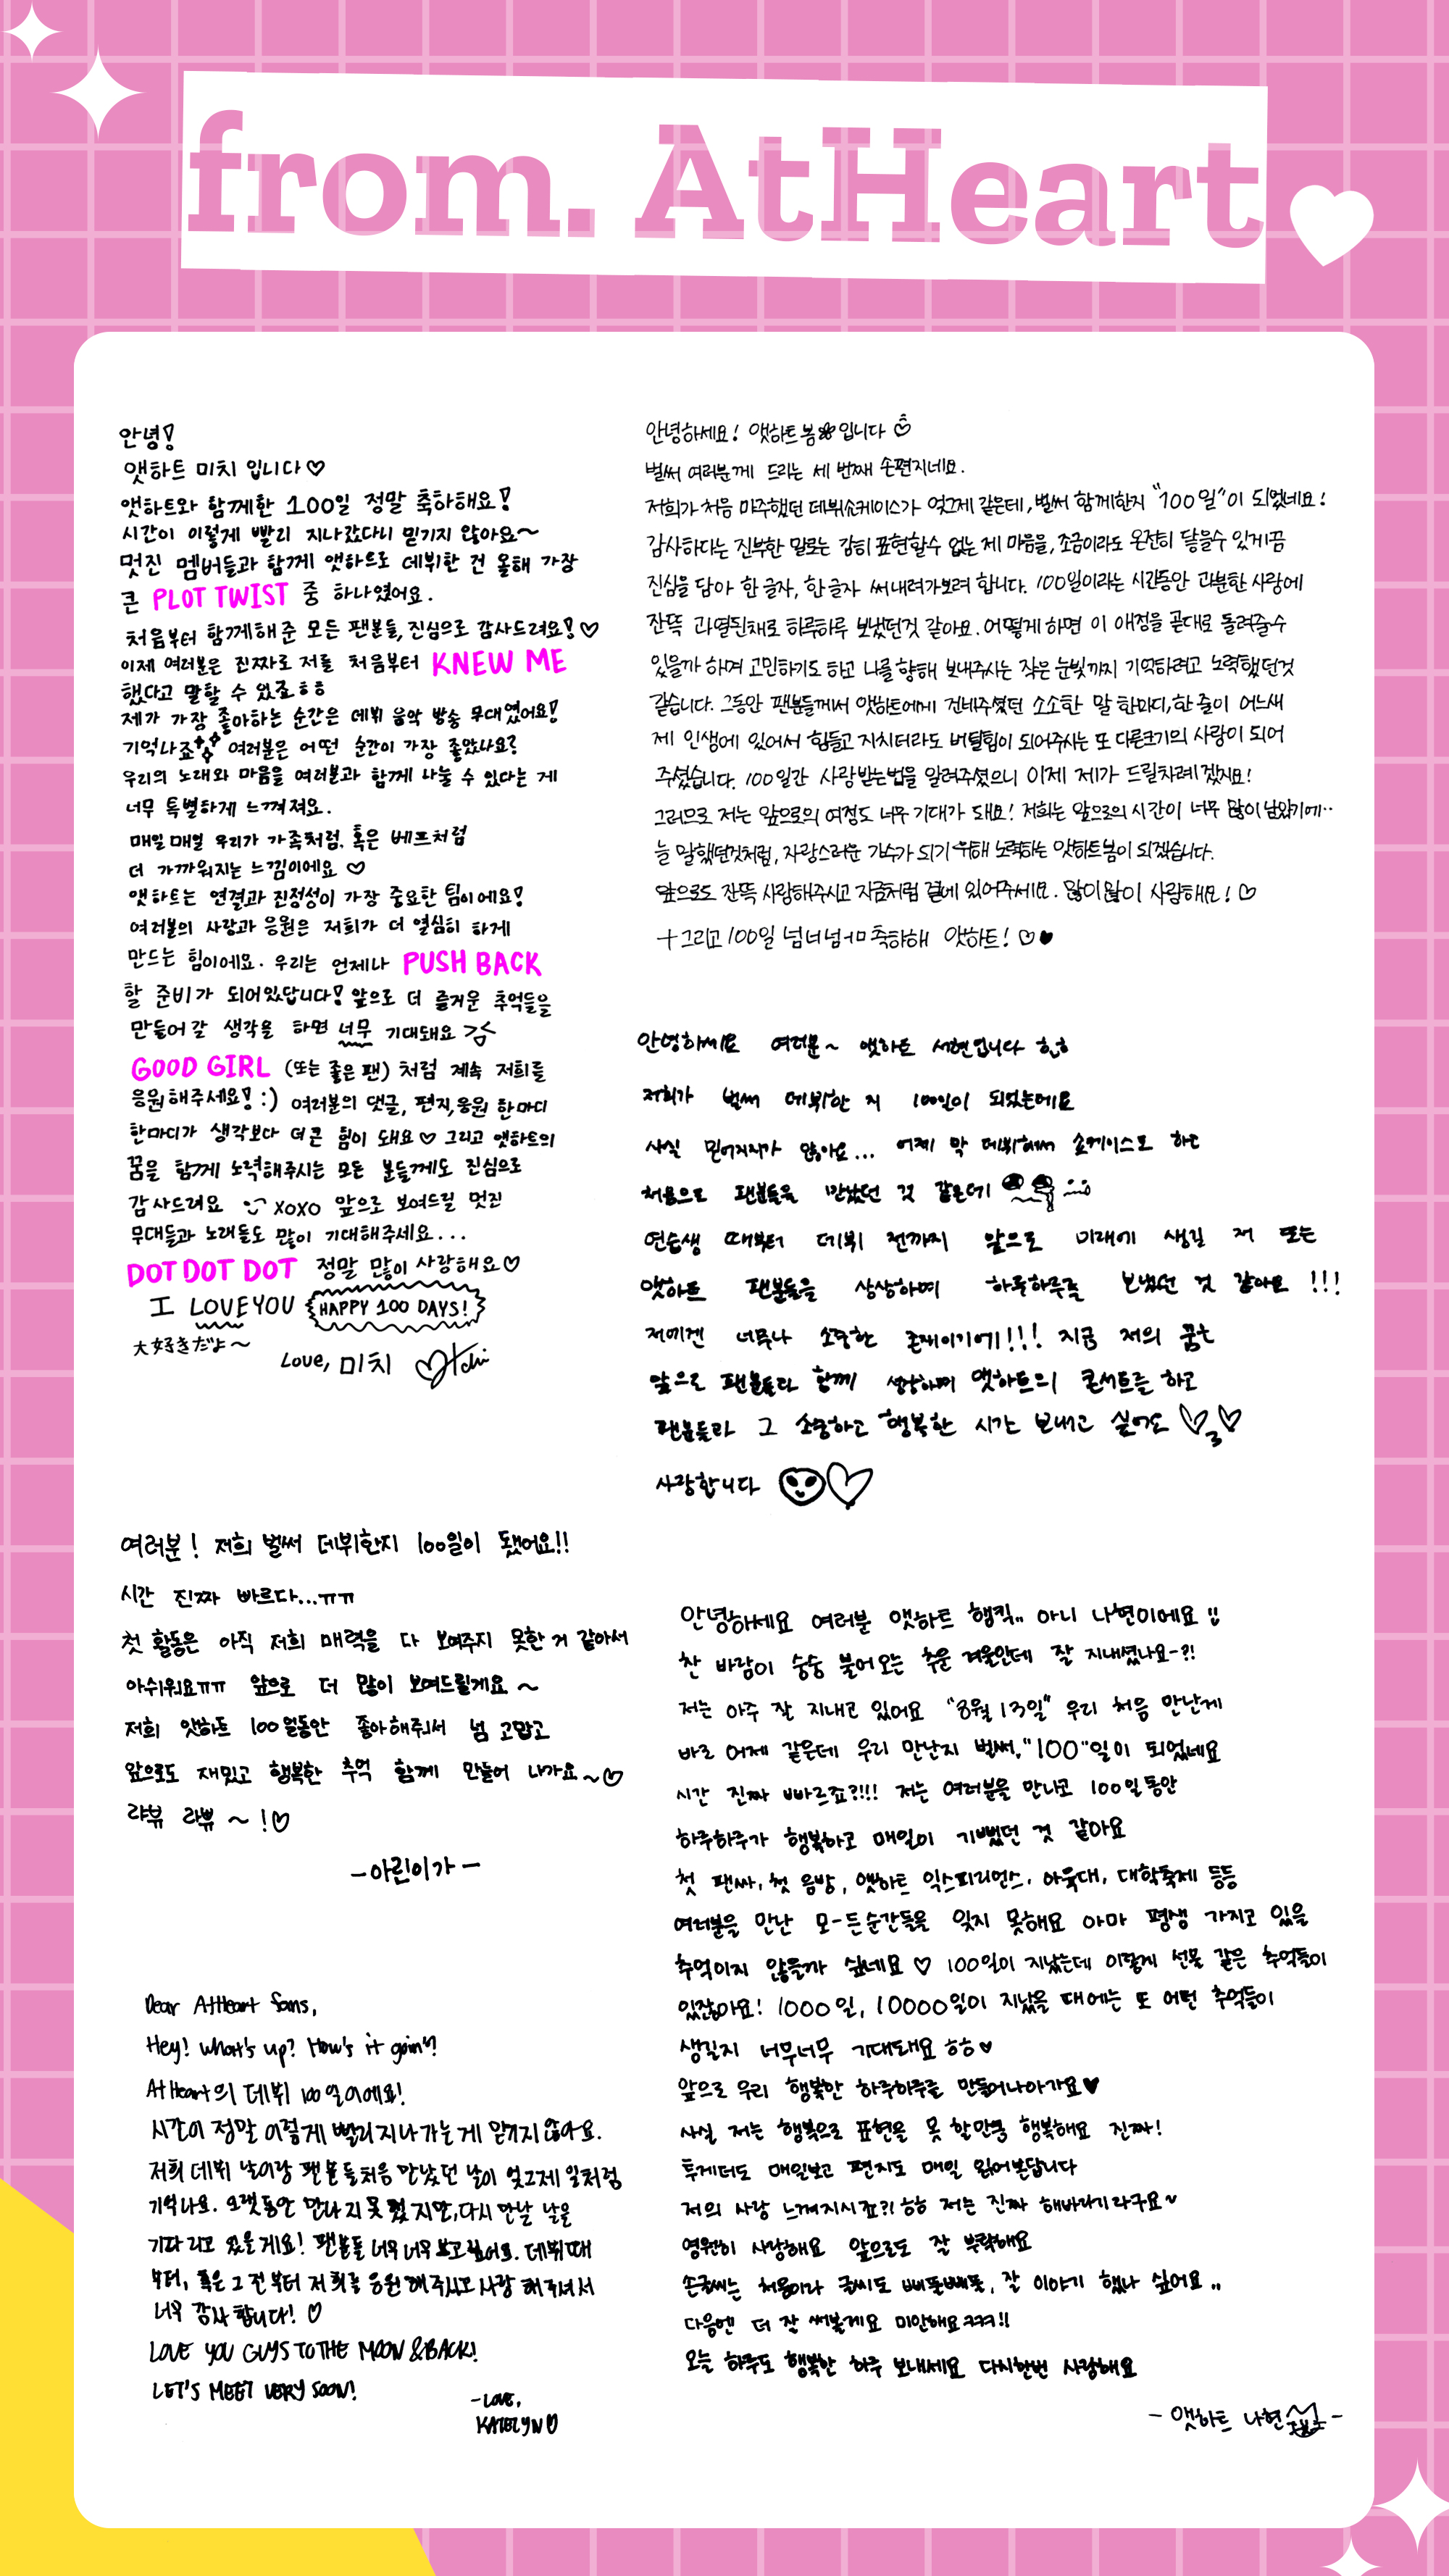 from. AtHeart
안녕!
앳하트 미치 입니다♡
앳하트와 함께한 100일 정말 축하해요!
시간이 이렇게 빨리 지나갔다니 믿기지 않아요~
멋진 멤버들과 함께 앳하트로 데뷔한 건 올해 가장
큰 PLOT TWIST 중 하나였어요.
처음부터 함께해 준 모든 팬분들, 진심으로 감사드려요!♡
이제 여러분은 진짜로 저를 처음부터 KNEW ME
했다고 말할 수 있죠ㅎㅎ
제가 가장 좋아하는 순간은 데뷔 음악 방송 무대였어요!
기억나죠 여러분은 어떤 순간이 가장 좋았나요?
우리의 노래와 마음을 여러분과 함께 나눌 수 있다는 게
너무 특별하게 느껴져요.
매일매일 우리가 가족처럼, 혹은 베프처럼
더 가까워지는 느낌이에요 ♡
앳하트는 연결과 진정성이 가장 중요한 팀이에요!
여러분의 사랑과 응원은 저희가 더 열심히 하게
만드는 힘이에요. 우리는 언제나 PUSH BACK
할 준비가 되어있답니다! 앞으로 더 즐거운 추억들을
만들어 갈 생각을 하면 너무 기대돼요 ><
GOOD GIRL (또는 좋은 팬) 처럼 계속 저희를
응원해주세요! :) 여러분의 댓글, 편지, 응원 한마디
한마디가 생각보다 더 큰 힘이 돼요♡ 그리고 앳하트의
꿈을 함께 노력해주시는 모든 분들께도 진심으로
감사드려요 xoxo 앞으로 보여드릴 멋진
무대들과 노래들도 많이 기대해주세요...
DOT DOT DOT 정말 많이 사랑해요♡
I LOVE YOU HAPPY 100 DAYS!
大好きだよ~
Love, 미치
안녕하세요! 앳하트 봄입니다
벌써 여러분께 드리는 세 번째 손편지네요.
저희가 처음 마주했던 데뷔쇼케이스가 엊그제 같은데, 벌써 함께한지 "100일"이 되었네요!
감사하다는 진부한 말로는 감히 표현할수 없는 제 마음을, 조금이라도 온전히 닿을수 있게끔
진심을 담아 한 글자, 한 글자 써내려가보려 합니다. 100일이라는 시간동안 과분한 사랑에
잔뜩 과열된채로 하루하루 보냈던것 같아요. 어떻게 하면 이 애정을 곧대로 돌려줄수
있을까 하며 고민하기도 하고 나를 향해 보내주시는 작은 눈빛까지 기억하려고 노력했던것
같습니다. 그동안 팬분들께서 앳하트에게 건네주셨던 소소한 말 한마디, 한 줄이 어느새
제 인생에 있어서 힘들고 지치더라도 버틸팀이 되어주시는 또 다른크기의 사랑이 되어
주셨습니다. 100일간 사랑받는법을 알려주셨으니 이제 제가 드릴차례겠지요!
그러므로 저는 앞으로의 여정도 너무 기대가 돼요! 저희는 앞으로의 시간이 너무 많이 남았기에..
늘 말했던것처럼, 자랑스러운 가수가 되기 위해 노력하는 앳하트봄이 되겠습니다.
앞으로도 잔뜩 사랑해주시고 지금처럼 곁에 있어주세요. 많이많이 사랑해요! ♡
+그리고 100일 넘너넘너므 축하해 앳하트! ♡♥
안녕하세요 여러분~ 앳하트 서현입니다 ㅎㅎ
저희가 벌써 데뷔한 지 100일이 되었는데요
사실 믿어지지가 않아요... 어제 막 데뷔해서 쇼케이스도 하고
처음으로 팬분들을 만났던 것 같은데
연습생 때부터 데뷔 전까지 앞으로 미래에 생길 저 또는
앳하트 팬분들을 상상하며 하루하루를 보냈던 것 같아요 !!!
저에겐 너무나 소중한 존재이기에!!! 지금 저의 꿈은
앞으로 팬분들과 함께 생각하며 앳하트의 콘서트를 하고
팬분들과 그 소중하고 행복한 시간 보내고 싶어요
사랑합니다
여러분! 저희 벌써 데뷔한지 100일이 됐어요!!
시간 진짜 빠르다...ㅠㅠ
첫 활동은 아직 저희 매력을 다 보여주지 못한 거 같아서
아쉬워요ㅠㅠ 앞으로 더 많이 보여드릴게요~
저희 앳하트 100일동안 좋아해줘서 넘 고맙고
앞으로도 재밌고 행복한 추억 함께 만들어 나가요~♡
랴뷰 라쀼~!♡
-아린이가-
Dear AtHeart fans,
Hey! What's up? How's it goin'?
AtHeart의 데뷔 100일이에요!
시간이 정말 이렇게 빨리 지나가는 게 믿기지 않아요.
저희 데뷔 날이랑 팬분들 처음 만났던 날이 엊그제 일처럼
기억나요. 오랫동안 만나지 못했지만, 다시 만날 날을
기다리고 있을게요! 팬분들 너무너무 보고싶어요. 데뷔때
부터, 혹은 그 전부터 저희를 응원해주시고 사랑해주셔서
너무 감사합니다! ♡
LOVE YOU GUYS TO THE MOON & BACK!
LET'S MEET VERY SOON!
-LOVE,
KATELYN♡
안녕하세요 여러분 앳하트 햄킥.. 아니 나현이에요 !!
찬 바람이 숭숭 불어오는 추운 겨울인데 잘 지내셨나요-?!
저는 아주 잘 지내고 있어요 "8월 13일" 우리 처음 만난게
바로 어제 같은데 우리 만난지 벌써, "100"일이 되었네요
시간 진짜 빠르죠?!!! 저는 여러분을 만나고 100일동안
하루하루가 행복하고 매일이 기뻤던 것 같아요
첫 팬싸, 첫 음방, 앳하트 익스피리언스, 아육대, 대학축제 등등
여러분을 만난 모-든순간들을 잊지 못해요 아마 평생 가지고 있을
추억이지 않을까 싶네요 ♡ 100일이 지났는데 이렇게 선물 같은 추억들이
있잖아요! 1000일, 10000일이 지났을 때에는 또 어떤 추억들이
생길지 너무너무 기대돼요 ㅎㅎ♥
앞으로 우리 행복한 하루하루를 만들어나아가요♥
사실 저는 행복으로 표현을 못 할만큼 행복해요 진짜!
투게더도 매일보고 편지도 매일 읽어본답니다
저의 사랑 느껴지시죠?! ㅎㅎ 저는 진짜 해바라기라구요~
영원히 사랑해요 앞으로도 잘 부탁해요
손글씨는 처음이라 글씨도 삐뚤빼뚤, 잘 이야기 했나 싶어요..
다음엔 더 잘 써볼게요 미안해요ㅋㅋㅋ!!
오늘 하루도 행복한 하루 보내세요 다시한번 사랑해요
- 앳하트 나현 -